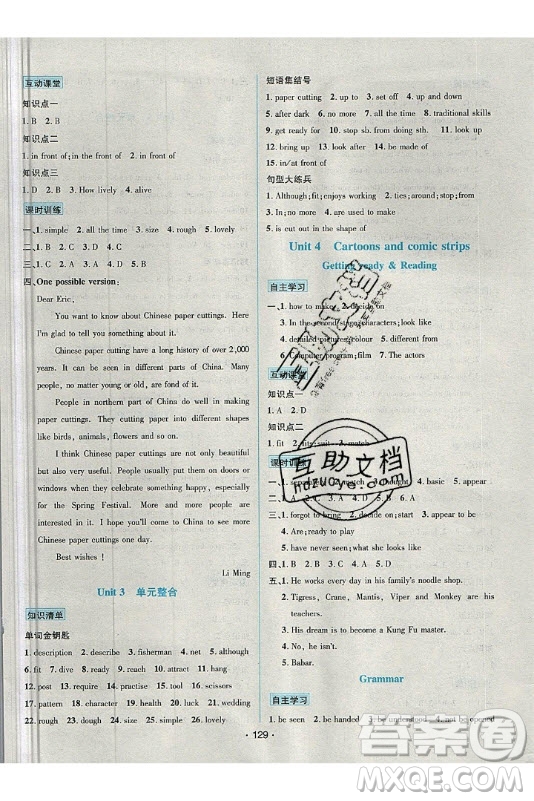 互动课堂
知识点一
1. B  2. B
知识点二
1. in front of;in front of  2. in front of
知识点三
1. D  2. B  3. How lively  4. alive
课时训练
一、1. simple  2. time  3. size  4. rough  5. lovely
二、1. B  2. C  3. A  4. C  5. A
三、1. C  2. C  3. B  4. A  5. B
四、One possible version:
Dear Eric,
You want to know about Chinese paper cuttings.
Chinese paper cutting has a history of over 2,000
years. It can be seen in different parts of China. Many
people, no matter young or old, are interested in making
paper cuttings. They cut paper into different shapes
like birds, animals, flowers and so on.
Chinese paper cuttings are not only beautiful
but also very useful. People put them on doors or
windows when they celebrate something happy, especially
for the Spring Festival. More and more people are
interested in it. I hope you can come to China to see
Chinese paper cuttings one day.
Best wishes!
Li Ming
Unit 3 单元整合
知识清单
单词金钥匙
1. description  2. describe  3. fisherman  4. net  5. although
6. fit  7. drive  8. ready  9. dead  10. used  11. living
12. post  13. require  14. Instead  15. top  16. scissors
17. paint  18. part  19. character  20. luck  21. wedding
22. rough  23. dough  24. size  25. simple  26. lovely
短语集结号
1. paper cutting  2. up to  3. set off  4. up and down
5. after dark  6. no more  7. all over  8. traditional skills
9. get ready for  10. stop sb. from doing sth.  11. look up
12. bring up  13. look after  14. be made of
15. in/at front of
句型大练兵
1. Although;fit;enjoys working  2. ties;around;stop;from
3. In;no more  4. is;made of
5. is cut out in the shape of
Unit 4 Cartoons and comic strips
Getting ready & Reading
自主学习
1. how to make  2. decide on
3. In the second stage;characters;look like
4. detailed pictures;colour
6. Computer program;film  7. The actors
互动课堂
知识点一
1. A  2. D
知识点二
1. fit  2. fits;suit  3. match
课时训练
thought  4. basic  5. appear
5. A
三、1. forgot to bring  2. decide on;start with
4. Are;ready to play
5. have never seen;what they look like
四、1. C  2. B  3. A  4. D  5. A
五、1. He works every day in his family's noodle shop.
2. Tigress, Crane, Mantis, Viper and Monkey are his
heroes.
3. His dream is to become a Kung Fu master.
4. No, he doesn't.
5. Babar.
Grammar
自主学习
1. be seen  2. be handed  3. be understood  4. not be opened
· 129 ·
互助文档
hofuoye.com
答案圈
MXQE.COM